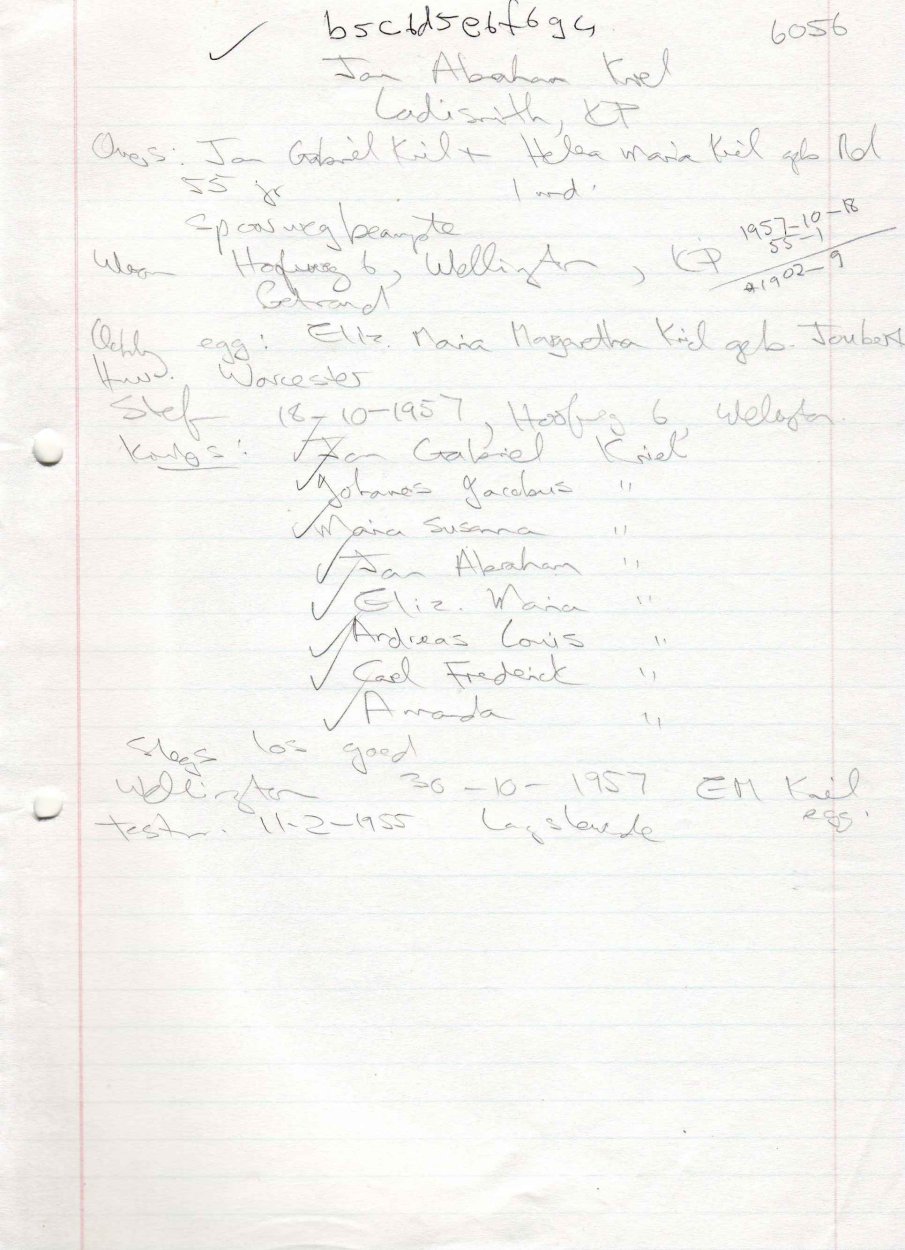 ✓ b5c6d5e6f6g4 6056
Jan Abraham Kriel
Ladismith, KP
Ouers: Jan Gabriel Kriel + Helena Maria Kriel geb Nel
55 jr 1 md.
Spoorwegbeampte
Woon Hoofweg 6, Wellington, KP
1957-10-18
55-1
*1902-9
Getroud
egg: Eliz. Maria Margaretha Kriel geb. Joubert
Huw. Worcester
Sterf 18-10-1957, Hoofweg 6, Wellington.
Kinders: ✓ Jan Gabriel Kriel
✓ Johannes Jacobus "
✓ Maria Susanna "
✓ Jan Abraham "
✓ Eliz. Maria "
✓ Andreas Louis "
✓ Carel Frederick "
✓ Amanda "
Slegs los goed
Wellington 30-10-1957 EM Kriel
egg.
testm. 11-2-1955 Langslewende